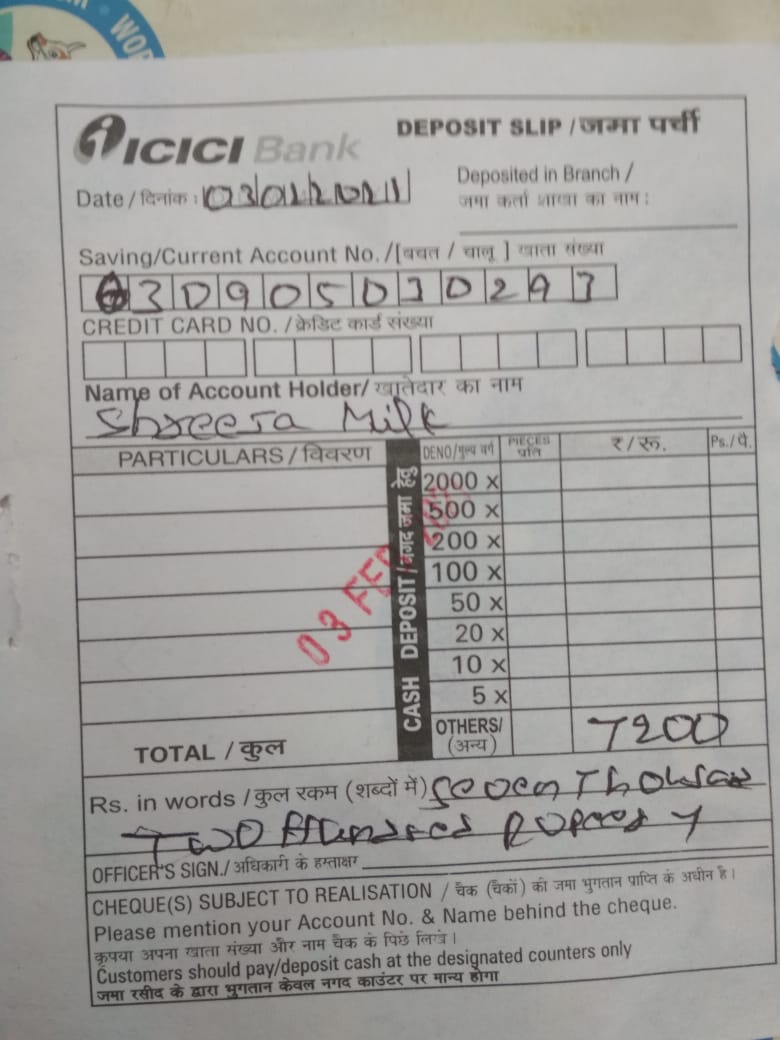 WOR
ICICI Bank
DEPOSIT SLIP / जमा पर्ची
Date / दिनांक :
Deposited in Branch /
जमा कर्ता शाखा का नाम :
Saving/Current Account No. /[बचत / चालू ] खाता संख्या
CREDIT CARD NO. / क्रेडिट कार्ड संख्या
Name of Account Holder/ खातेदार का नाम
Shreeja Milk
PARTICULARS / विवरण
CASH DEPOSIT / नगद जमा हेतु
DENO/मुल्य वर्ग PIECES ₹ / रू. Ps./पै.
प्रति
2000 x
500 x
200 x
100 x
50 x
20 x
10 x
5 x
03 FEB
TOTAL / कुल
OTHERS/ 7200
(अन्य)
Rs. in words / कुल रकम (शब्दों में) Seven Thousand
Two Hundred Rupees
OFFICER'S SIGN./ अधिकारी के हस्ताक्षर
CHEQUE(S) SUBJECT TO REALISATION / चैक (चैकों) की जमा भुगतान प्राप्ति के अधीन है।
Please mention your Account No. & Name behind the cheque.
कृपया अपना खाता संख्या और नाम चैक के पिछे लिखे।
Customers should pay/deposit cash at the designated counters only
जमा रसीद के द्वारा भुगतान केवल नगद काउंटर पर मान्य होगा